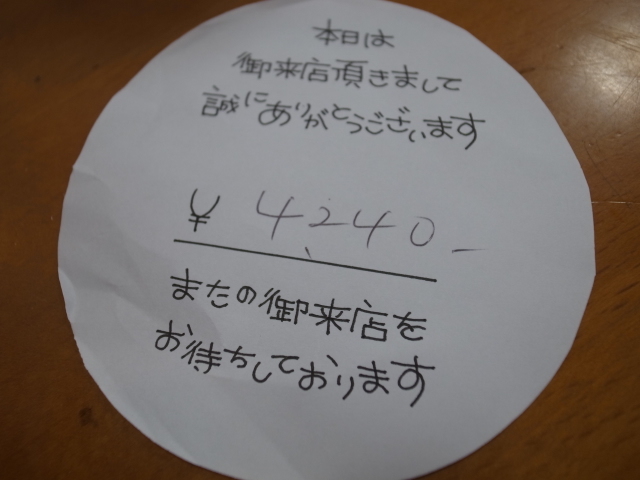 本日は
御来店頂きまして
誠にありがとうございます
¥ 4,240-
またの御来店を
お待ちしております